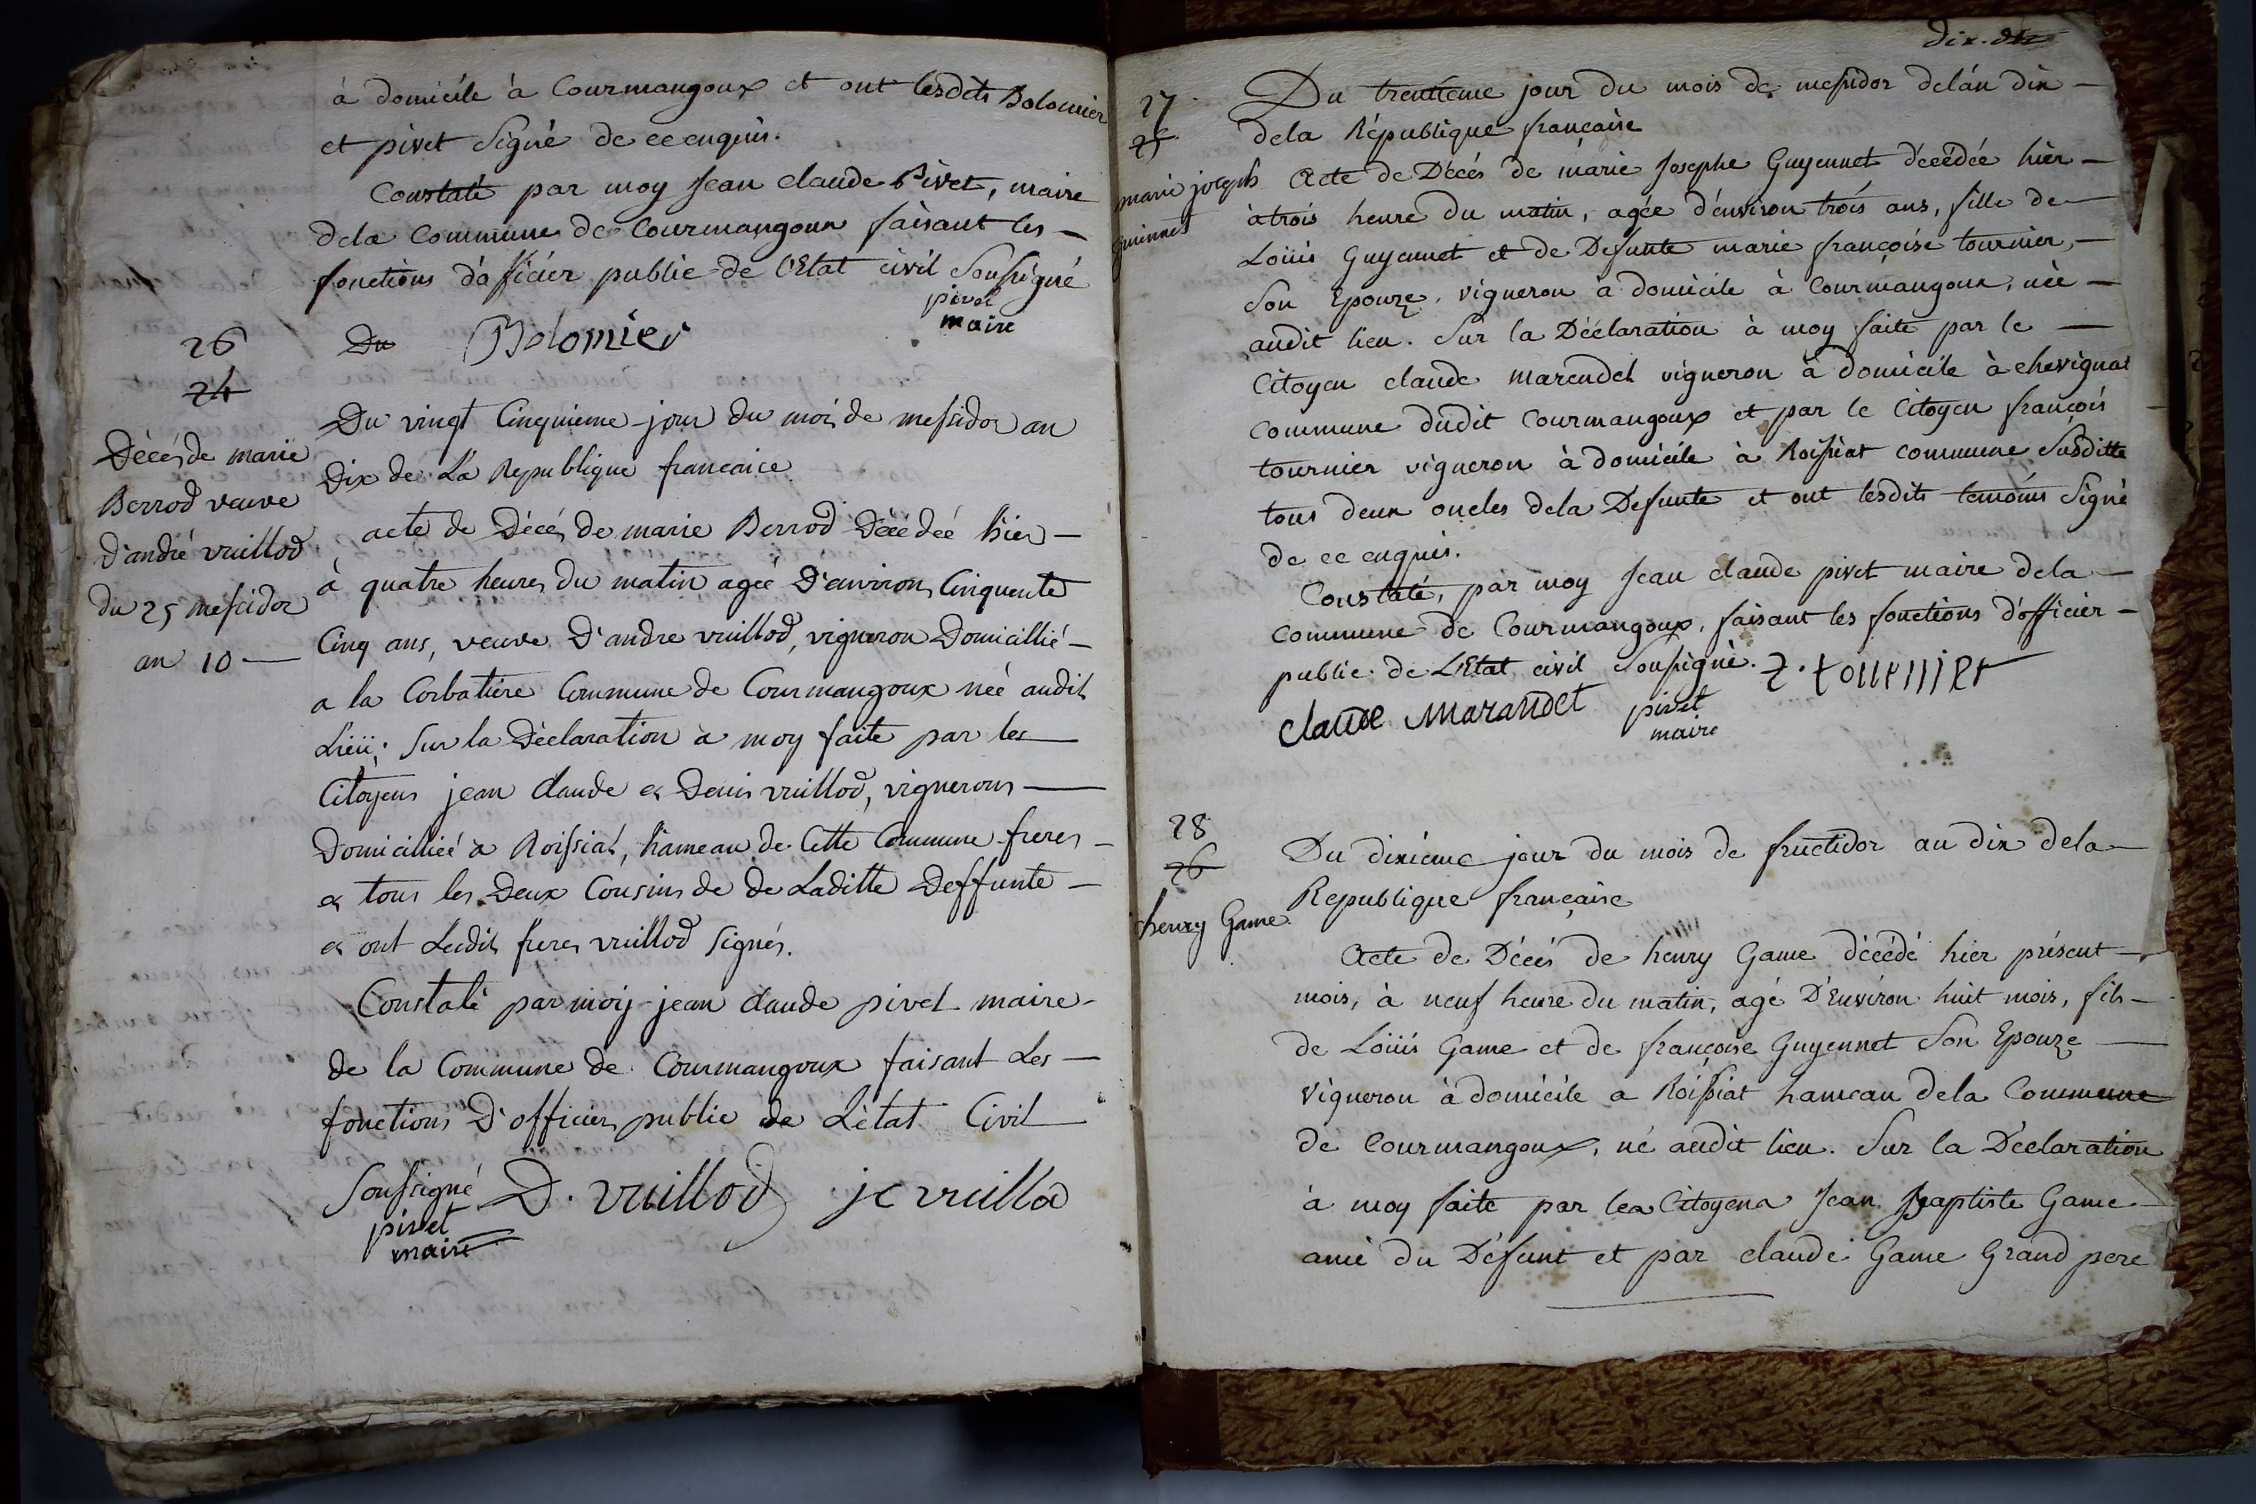 à domicile à Courmangoux et ont lesdits Bolomier
et pivet Signé de ce enquis.
Constaté par moy Jean claude Pivet, maire
dela Commune de Courmangoux faisant les
fonctions d'oficier public de l'Etat civil Soussigné
pivet
maire
Du Bolomier
26
24
Décés de marie
Berrod veuve
d'andré vuillod
du 25 messidor
an 10
Du vingt Cinquieme jour du mois de messidor an
Dix de La Republique francaice
acte de Décés de marie Berrod Décédée hier
à quatre heures du matin agée D'environ Cinquente
Cinq ans, veuve D'andre vuillod, vigneron Domicillié
a la Corbatiere Commune de Courmangoux née audit
Lieu; Sur la Déclaration a moy faite par les
Citoyens jean claude et Denis vuillod, vignerons
Domicilliéé a Roissiat, hameau de Cette Commune freres
et tous les Deux Cousins de de Laditte Deffunte
et ont Lesdits freres vuillod signés.
Constaté par moij jean claude pivet maire
de la Commune de Courmangoux faisant Les
fonctions D'officier public de L'état Civil
Soussigné D. vuillod jc vuillod
pivet
maire
dix. dix
27
25
marie joseph
guinnet
Du trentieme jour du mois de messidor delán dix
dela République française
Acte de Décés de marie Josephe Guyennet décédée hier
à trois heure du matin, agée d'environ trois ans, fille de
Loüis Guyennet et de Defunte marie françoise tournier,
Son Epouze, vigneron à domicile à Courmangoux, née
audit lieu. Sur la Déclaration à moy faite par le
Citoyen claude marendet vigneron à domicile à chevignat
Commune dudit Courmangoux et par le Citoyen françois
tournier vigneron à domicile à Roissiat commune Susditte
tous deux oncles dela Defunte et ont lesdits temoins Signé
de ce enquis.
Constaté, par moy Jean claude pivet maire dela
Commune de Courmangoux, faisant les fonctions d'officier
public de L'Etat civil Soussigné. f. tournier
claude Marandet pivet
maire
28
26
henry Game
Du dixième jour du mois de fructidor an dix dela
Republique française
Acte de Décés de henry Game décédé hier présent
mois, à neuf heure du matin, agé D'Environ huit mois, fils
de Loüis Game et de françoise Guyennet Son Epouze
vigneron à domicile a Roissiat hameau dela Commune
de Courmangoux, né audit lieu. Sur la Déclaration
à moy faite par les Citoyens Jean Baptiste Game
amie du Défunt et par claude Game Grand pere